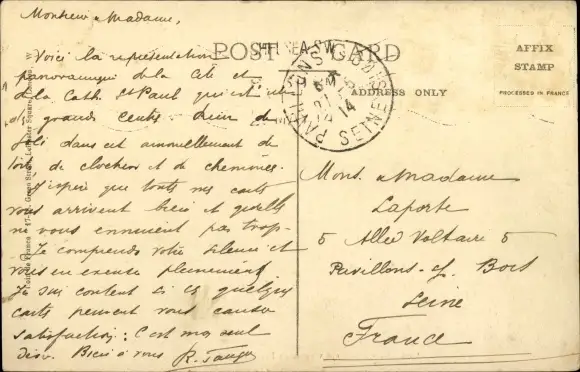 Monsieur & Madame,
Voici la représentation
panoramique de la Cité et
de la Cath. St Paul qui est un
des grands cents. Rien de
joli dans cet amoncellement de
toits de clochers et de cheminées.
J'espère que toutes mes cartes
vous arrivent bien et qu'elles
ne vous ennuient pas trop.
Je comprends votre silence et
vous en excuse pleinement
Je suis content si ces quelques
cartes peuvent vous causer
satisfaction : c'est mon seul
désir. Bien à vous R.
POST CARD
CHELSEA. S.W
ADDRESS ONLY
AFFIX
STAMP
PROCESSED IN FRANCE
PAVILLONS S BOIS
21
14
SEINE
Green Street, Leicester Square, London, W
Mons. & Madame
Laporte
5 Allée Voltaire 5
Pavillons-s/- Bois
Seine
France